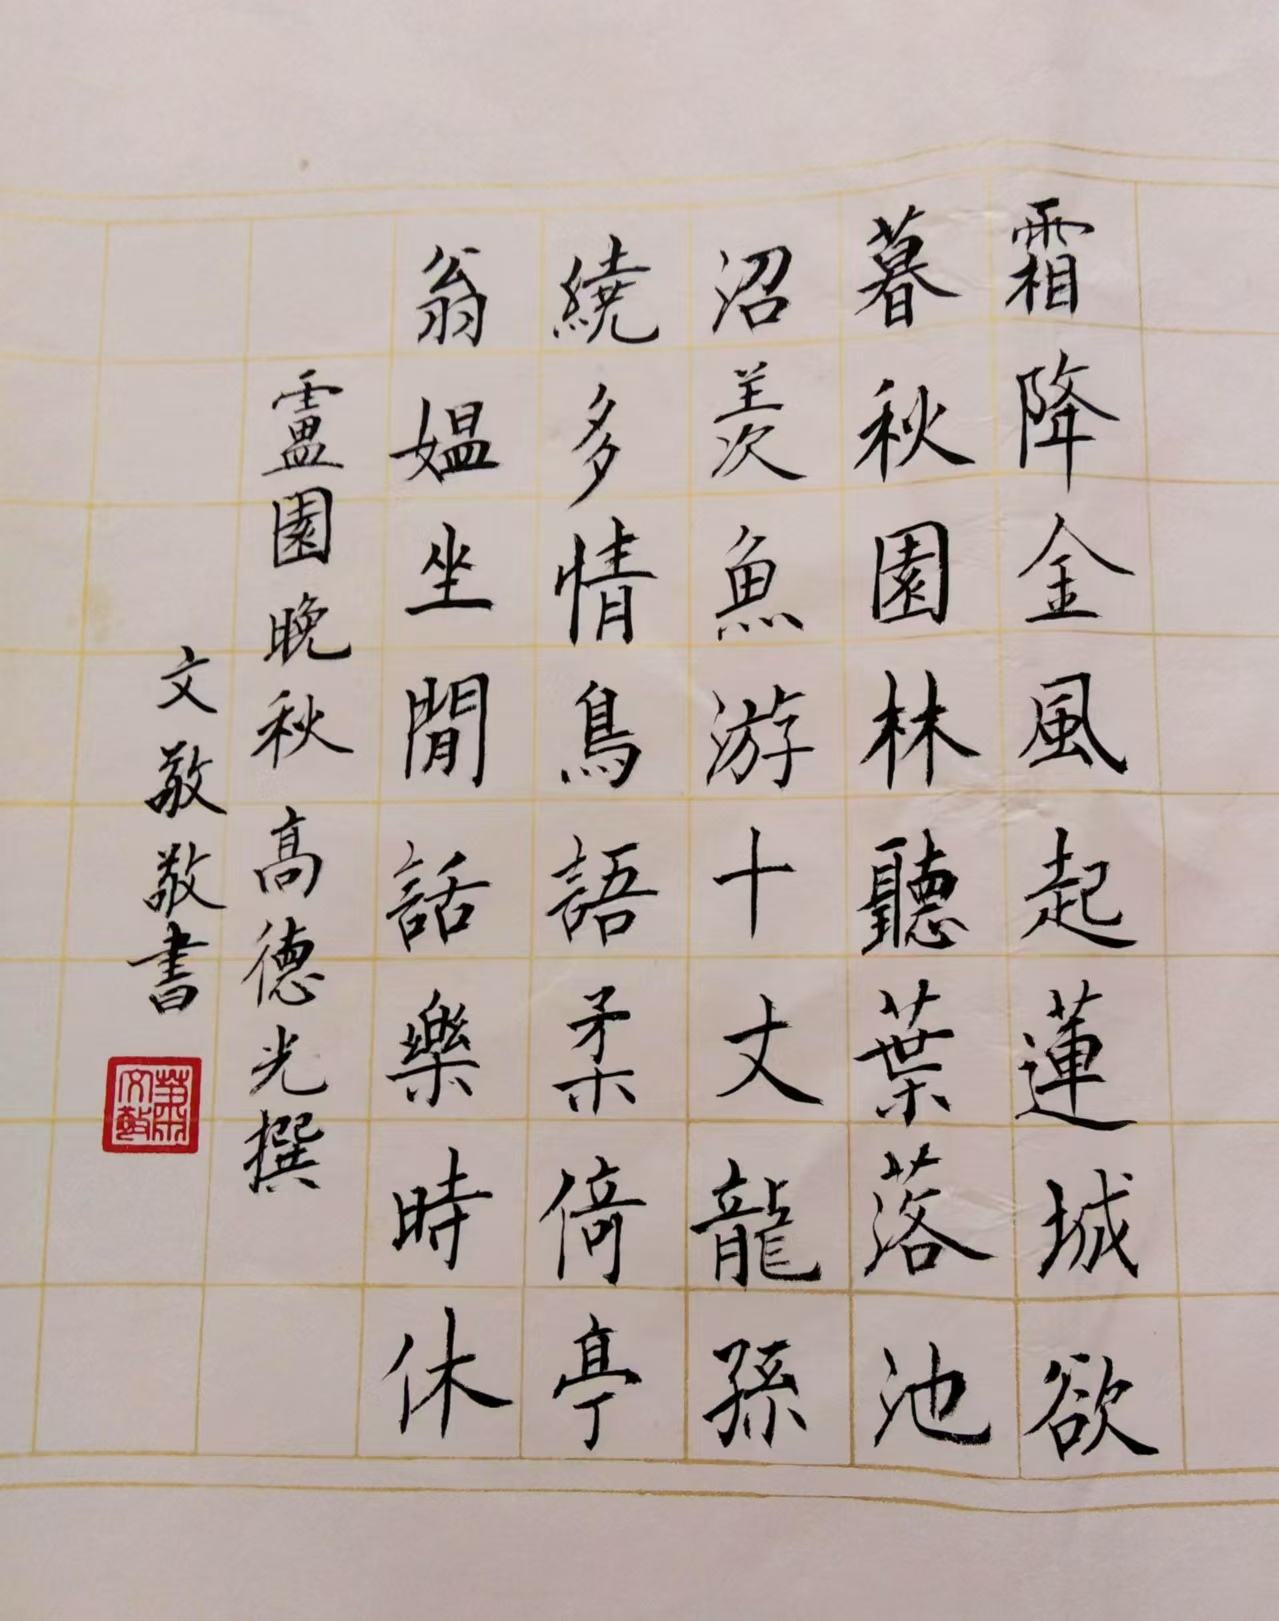 霜降金風起蓮城欲
暮秋園林聽葉落池
沼羨魚游十丈龍孫
繞多情鳥語柔倚亭
翁媪坐閒話樂時休
盧園晚秋 高德光撰
文敬敬書